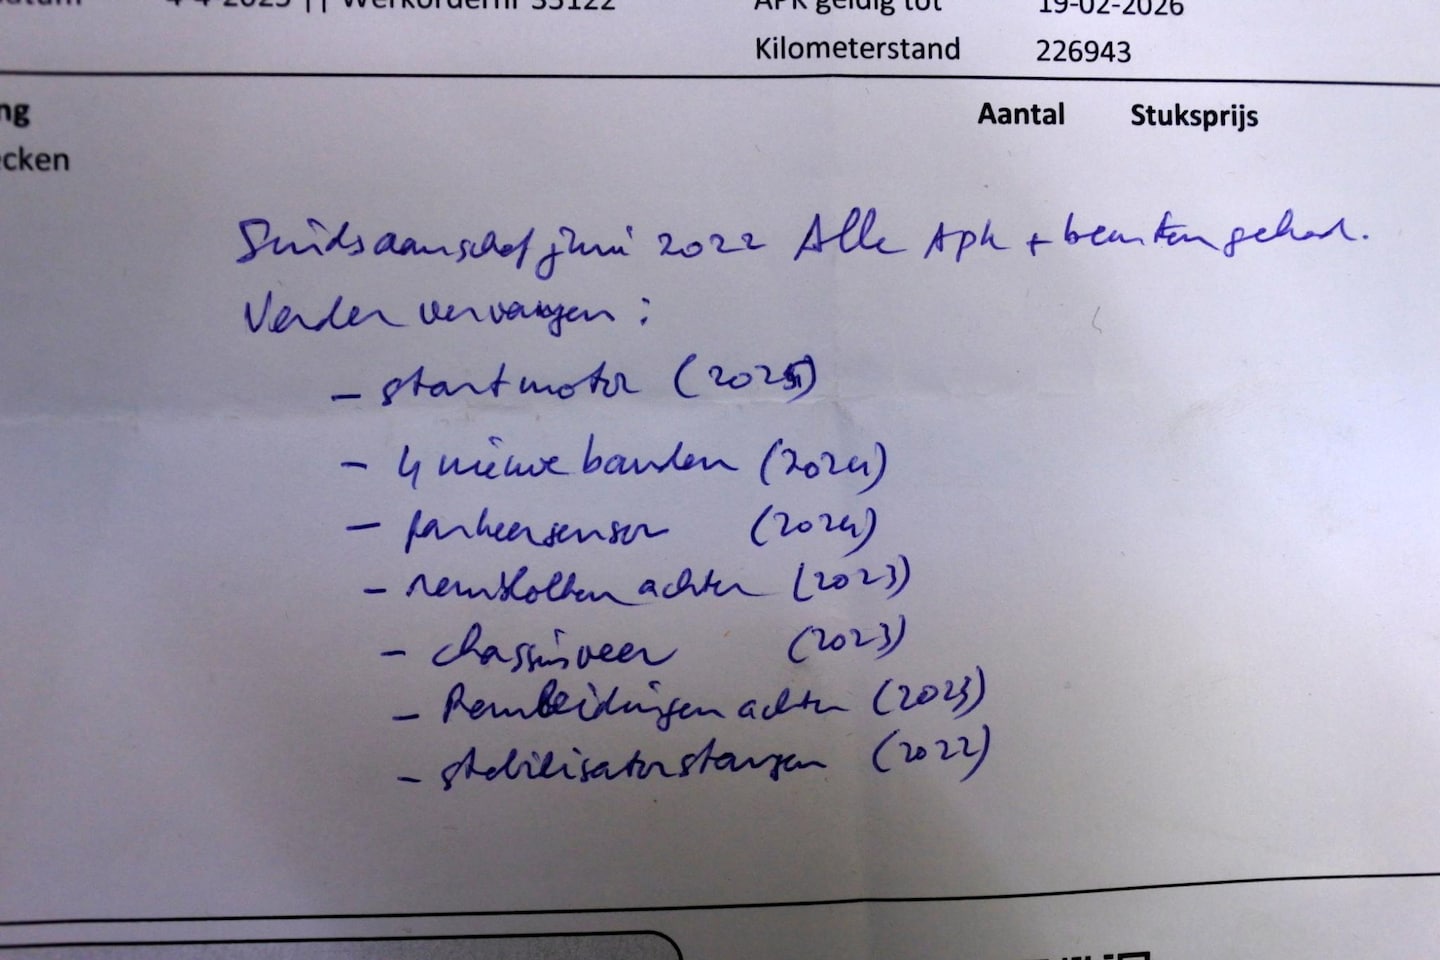 4-4-2025 || Werkordernr 35122
APK geldig tot 19-02-2026
Kilometerstand 226943
Aantal Stuksprijs
Sinds aanschaf juni 2022 Alle Apk + beurten gehad.
Verder vervangen:
- startmotor (2025)
- 4 nieuwe banden (2024)
- parkeersensor (2024)
- remblokken achter (2023)
- chassisveer (2023)
- Remleidingen achter (2023)
- stabilisatorstangen (2022)